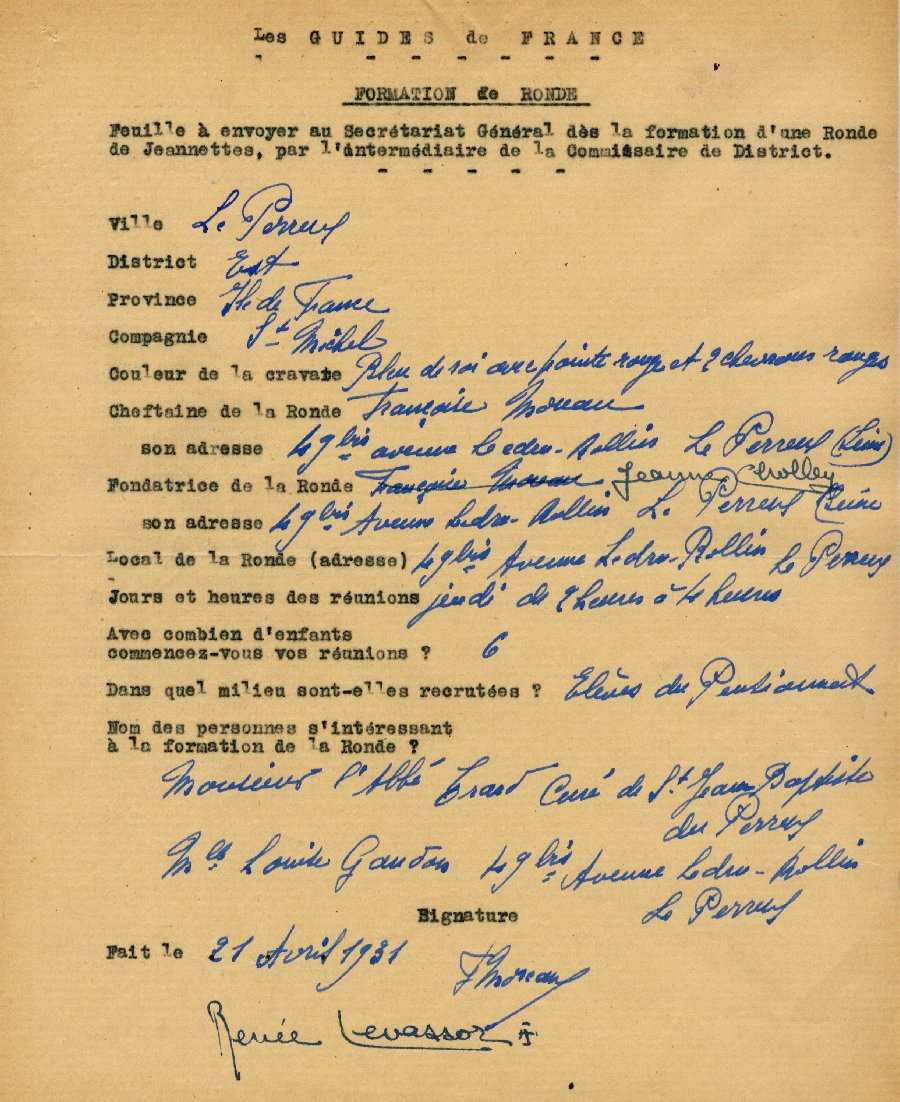 Les GUIDES de FRANCE
- - - - - - -
FORMATION de RONDE
Feuille à envoyer au Secrétariat Général dès la formation d'une Ronde
de Jeannettes, par l'intermédiaire de la Commissaire de District.
- - - - -
Ville Le Perreux
District Est
Province Ile de France
Compagnie St Michel
Couleur de la cravate Bleu de roi avec pointe rouge et 2 chevrons rouges
Cheftaine de la Ronde Françoise Moreau
son adresse 49 bis avenue Ledru-Rollin Le Perreux (Seine)
Fondatrice de la Ronde Françoise Moreau Jeanne
son adresse 49 bis Avenue Ledru-Rollin Le Perreux (Seine
Local de la Ronde (adresse) 49 bis Avenue Ledru-Rollin Le Perreux
Jours et heures des réunions jeudi de 2 heures à 4 heures
Avec combien d'enfants
commencez-vous vos réunions ? 6
Dans quel milieu sont-elles recrutées ? Elèves du Pensionnat
Nom des personnes s'intéressant
à la formation de la Ronde ?
Monsieur l'Abbé Curé de St Jean Baptiste
du Perreux
Mlle Louise 49 bis Avenue Ledru-Rollin
Le Perreux
Signature
Fait le 21 Avril 1931
FMoreau
Renée Levassor